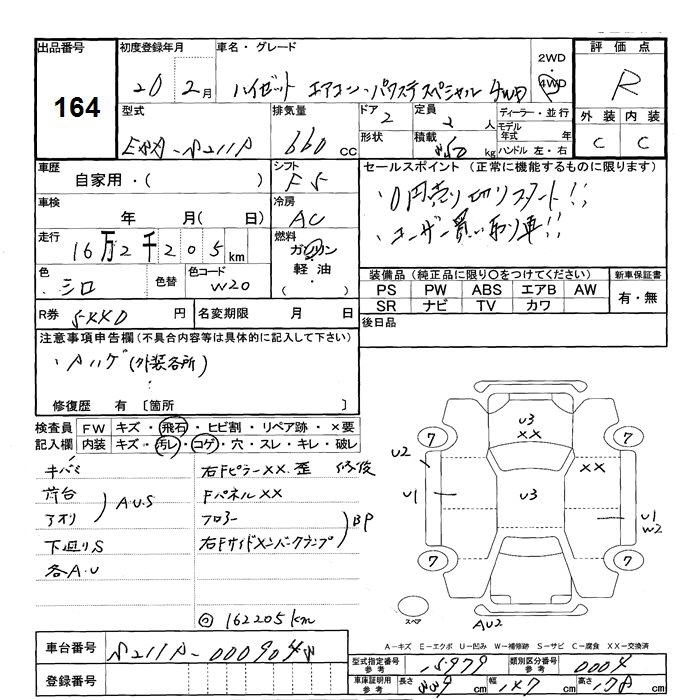 出品番号
164
初度登録年月
20年 2月
車名・グレード
ハイゼット エアコン・パワステスペシャル 4WD
2WD
4WD
評価点
R
外装 内装
C C
型式
EBD-S211P
排気量
660 cc
ドア 2
形状
定員 2 人
積載 350 kg
ディーラー・並行
モデル年式 年
ハンドル 左・右
車歴
自家用・( )
シフト
F5
セールスポイント (正常に機能するものに限ります)
・0円売り切りスタート!!
・ユーザー買い取り車!!
車検
年 月( 日)
冷房
AC
走行
16万2千205km
燃料
ガソリン
軽油
・( )
色
シロ
色替
色コード
W20
装備品(純正品に限り○をつけてください)
PS PW ABS エアB AW
SR ナビ TV カワ
新車保証書
有・無
R券
円
名変期限 月 日
後日品
注意事項申告欄(不具合内容等は具体的に記入して下さい)
・ハゲ(外装各所)
修復歴 有 〔箇所 〕
検査員 FW キズ・飛石・ヒビ割・リペア跡・×要
記入欄 内装 キズ・汚レ・コゲ・穴・スレ・キレ・破レ
キバミ
荷台
アオリ
A.U.S
下廻りS
各A.U
右Fピラー××.歪 修復
Fパネル××
フロアー
右Fサイドメンバークランプ
BP
◎ 162205km
U3
××
7
7
U2
××
U1
U3
U1
W2
7
7
スペア
AU2
A-キズ E-エクボ U-凹み W-補修跡 S-サビ C-腐食 XX-交換済
車台番号
登録番号
型式指定番号
参考
15979
類別区分番号
参考
0004
車庫証明用
参考
長さ
cm
幅
147 cm
高さ
178 cm